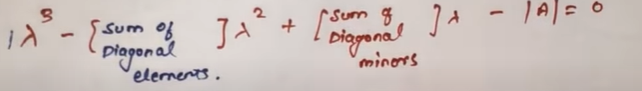 1λ³ - [Sum of Diagonal elements.]λ² + [Sum of Diagonal minors]λ - |A| = 0